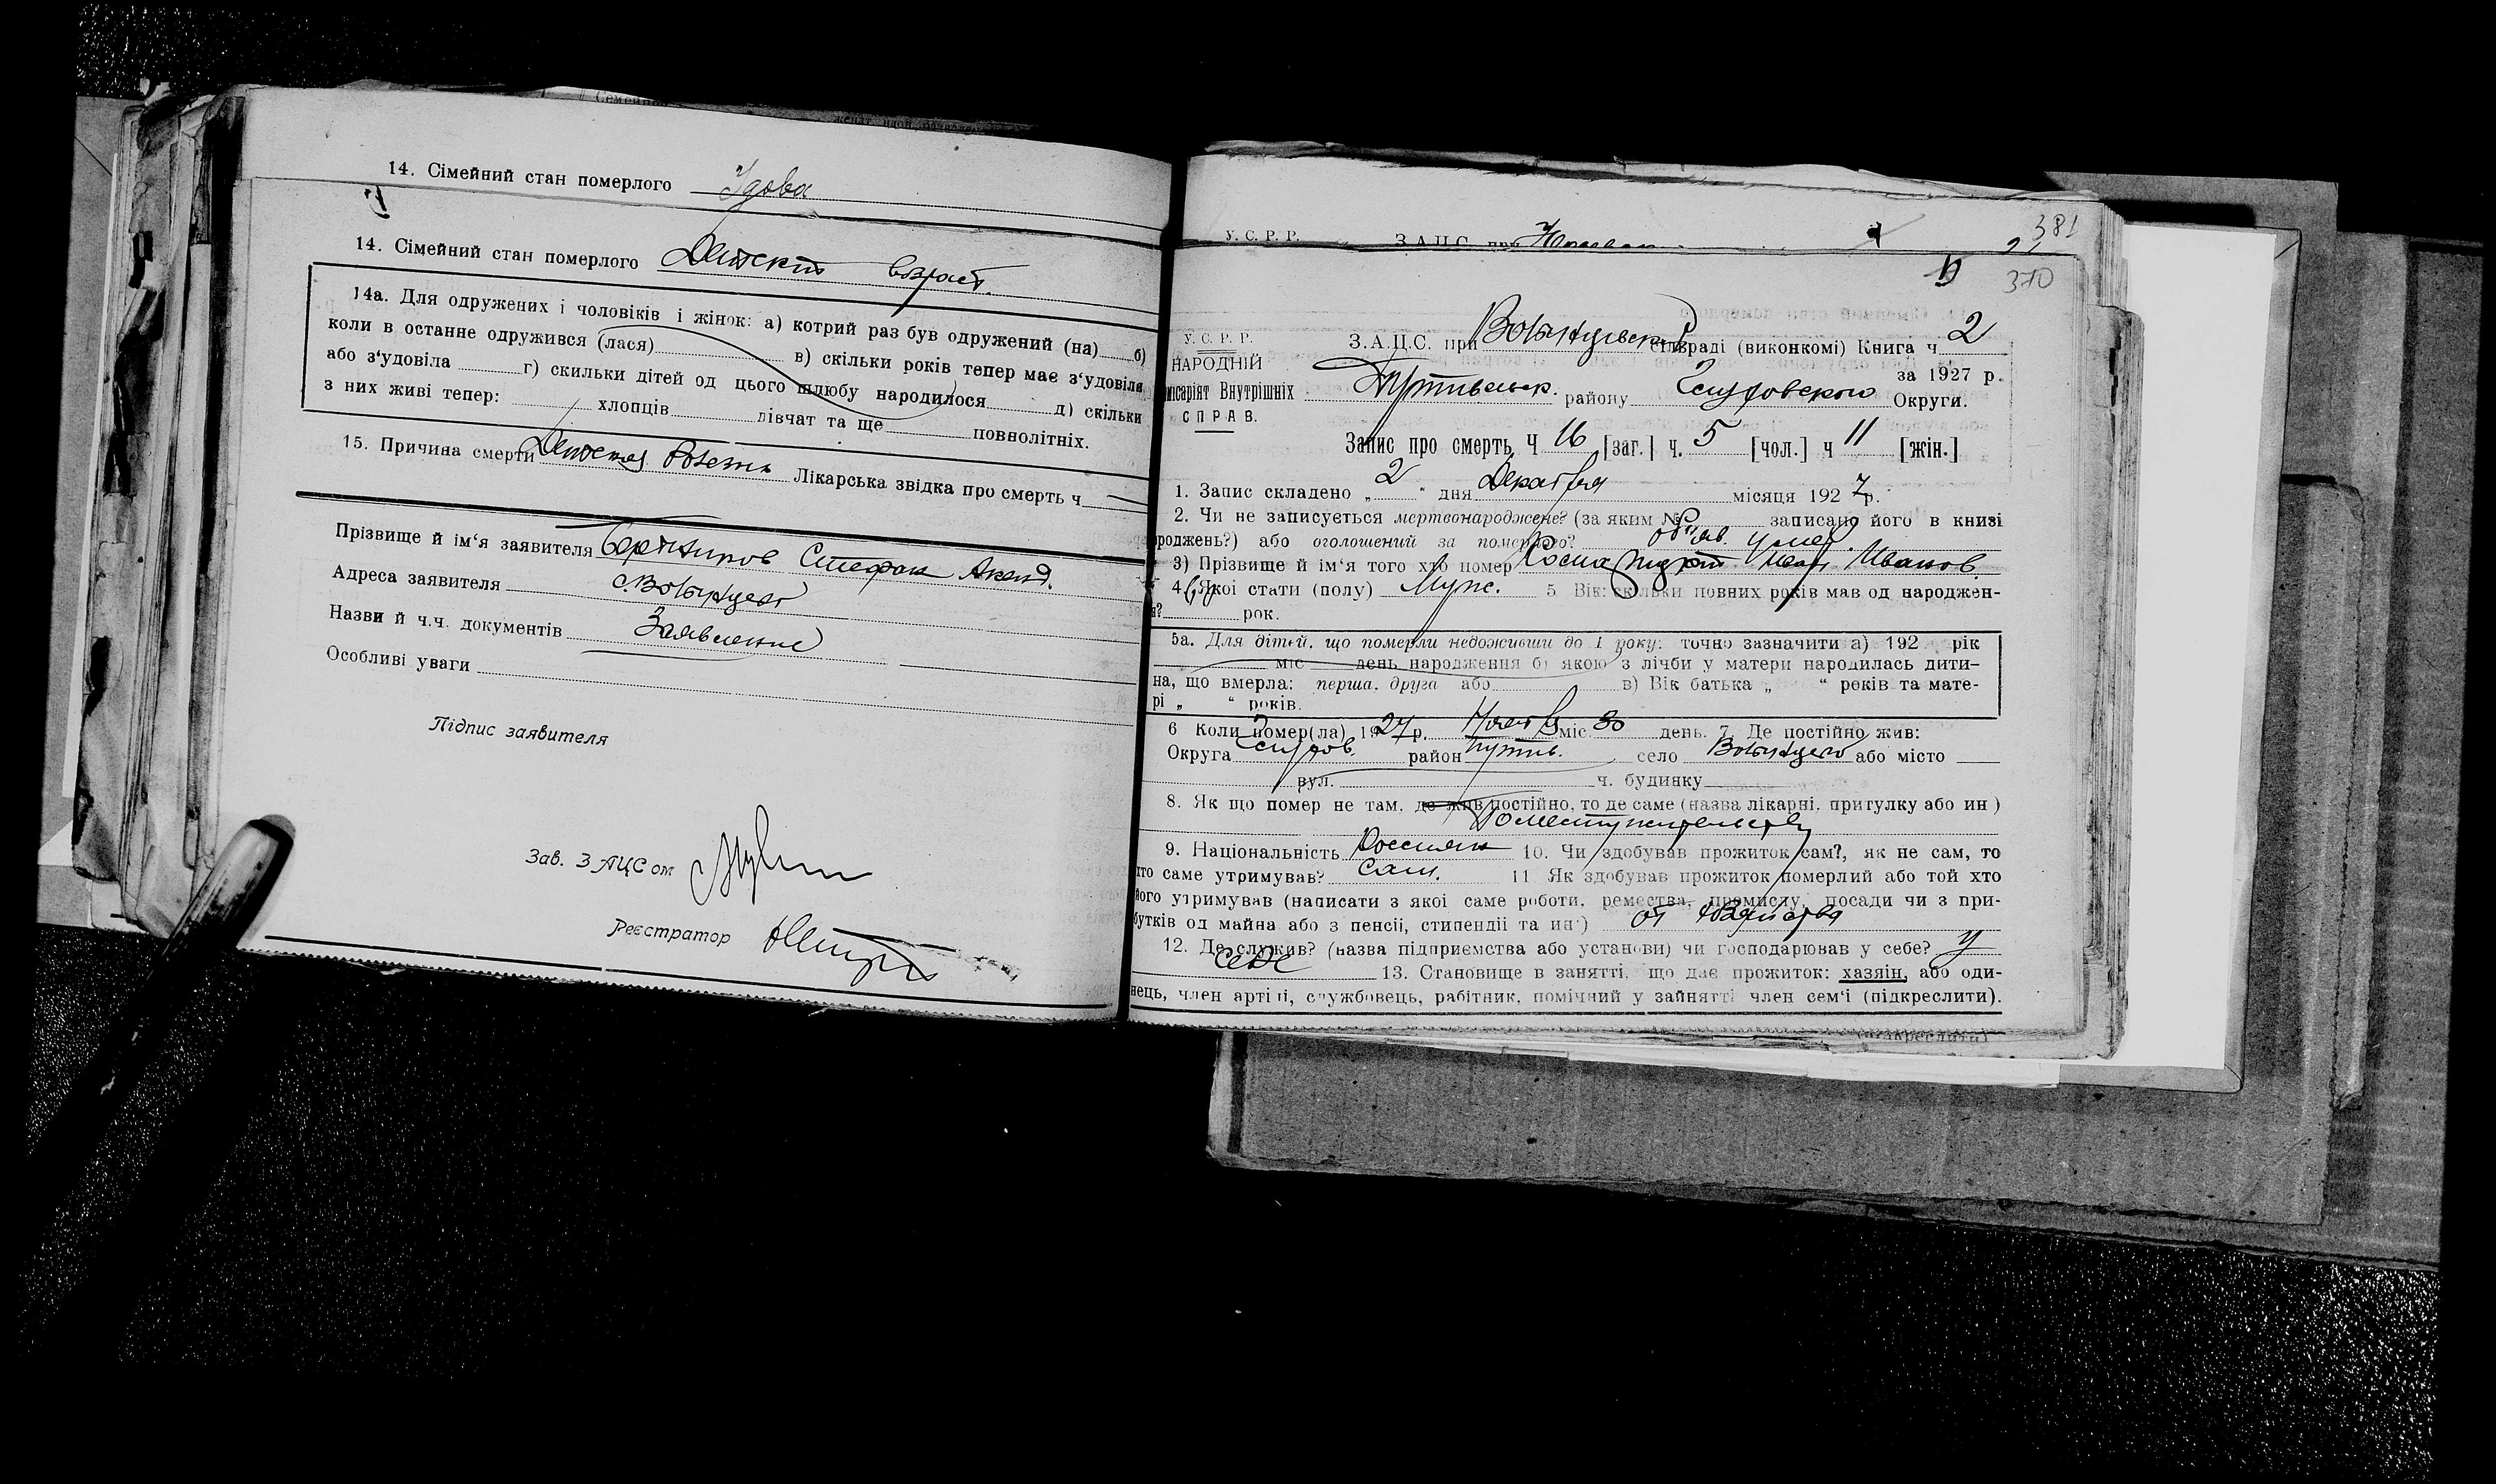 14. Сімейний стан померлого Удова
14. Сімейний стан померлого Детский возраст.
14а. Для одружених і чоловіків і жінок: а) котрий раз був одружений (на) б)
коли в останнє одружився (лася) в) скільки років тепер має з‘удовіла
або з‘удовіла г) скильки дітей од цього шлюбу народилося д) скільки
з них живі тепер: хлопців дівчат та ще повнолітніх.
15. Причина смерти Детская болезнь Лікарська звідка про смерть ч
Прізвище й ім‘я заявителя Стефан
Адреса заявителя с. Волынцево
Назви й ч.ч. документів Заявление
Особливі уваги
Підпис заявителя
Зав. ЗАЦСом
Реєстратор
381
У. С. Р. Р. З.А.Ц.С. при
370
У. С. Р. Р. З.А.Ц.С. при Волынцевской сільраді (виконкомі) Книга ч 2
НАРОДНІЙ за 1927 р.
місаріят Внутрішніх Путивльск. району Глуховского Округи.
СПРАВ.
Запис про смерть Ч 16 [заг.] ч. 5 [чол.] ч 11 [жін.]
1. Запис складено „ 2 “ дня Декабря місяця 1927 р.
2. Чи не записується мертвонароджене? (за яким № записано його в книзі
роджень?) або оголошений за померлого? об‘яв. умер.
3) Прізвище й ім‘я того хто помер Иван Иванов.
4. Якої стати (полу) Муж. 5 Вік: скільки повних років мав од народжен-
я? рок.
5а. Для дітей, що померли недоживши до 1 року: точно зазначити а) 192 рік
міс день народження б) якою з лічби у матери народилась дити-
на, що вмерла: перша, друга або в) Вік батька „ “ років та мате-
рі „ “ років.
6 Коли помер(ла) 1927 р. Ноября міс 30 день. 7. Де постійно жив:
Округа Глухов. район Путив. село Волынцево або місто
вул. ч. будинку
8. Як що помер не там, де жив постійно, то де саме (назва лікарні, притулку або ин)
По месту жительству
9. Національність Россиян 10. Чи здобував прожиток сам?, як не сам, то
хто саме утримував? Сам. 11 Як здобував прожиток померлий або той хто
його утримував (написати з якої саме роботи, ремества, промислу, посади чи з при-
бутків од майна або з пенсії, стипендії та ин.)
12. Де служив? (назва підприємства або установи) чи господарював у себе? у
себе 13. Становище в занятті, що дає прожиток: хазяін, або оди-
нець, член артілі, службовець, рабітник, помічний у зайнятті член сем‘ї (підкреслити).